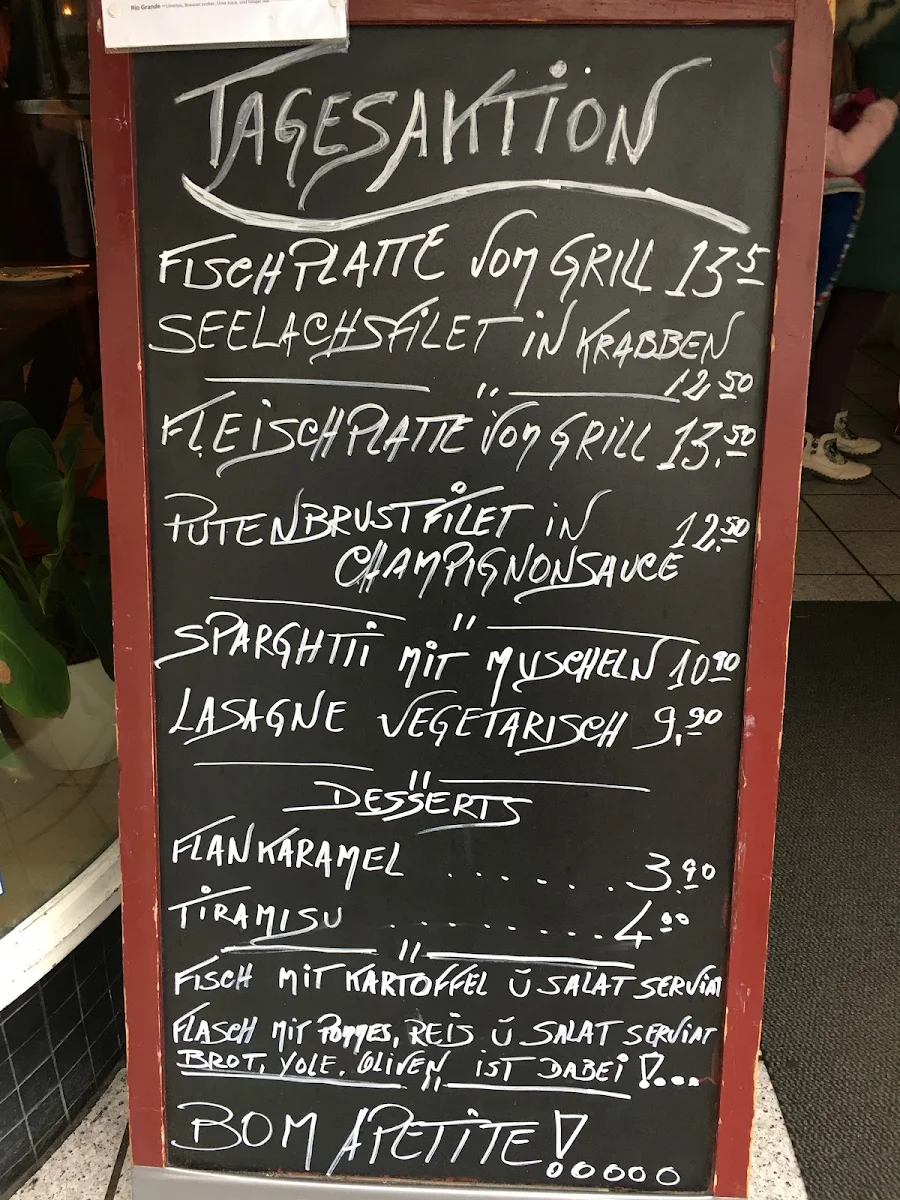 Rio Grande – Limetten, Brauner zucker, Lime Juice, und Ginger Ale
TAGESAKTION
FISCHPLATTE VOM GRILL 13,5
SEELACHSFILET IN KRABBEN
12,50
FLEISCHPLATTE VOM GRILL 13,50
PUTENBRUSTFILET IN 12,50
CHAMPIGNONSAUCE
SPARGHTTI MIT MUSCHELN 10,90
LASAGNE VEGETARISCH 9,90
DESSERTS
FLANKARAMEL ....... 3,90
TIRAMISU ......... 4,00
FISCH MIT KARTOFFEL Ü SALAT SERVIRT
FLASCH MIT POMMES, REIS Ü SALAT SERVIRT
BROT, YOLE, OLIVEN IST DABEI !...
BOM APETITE !